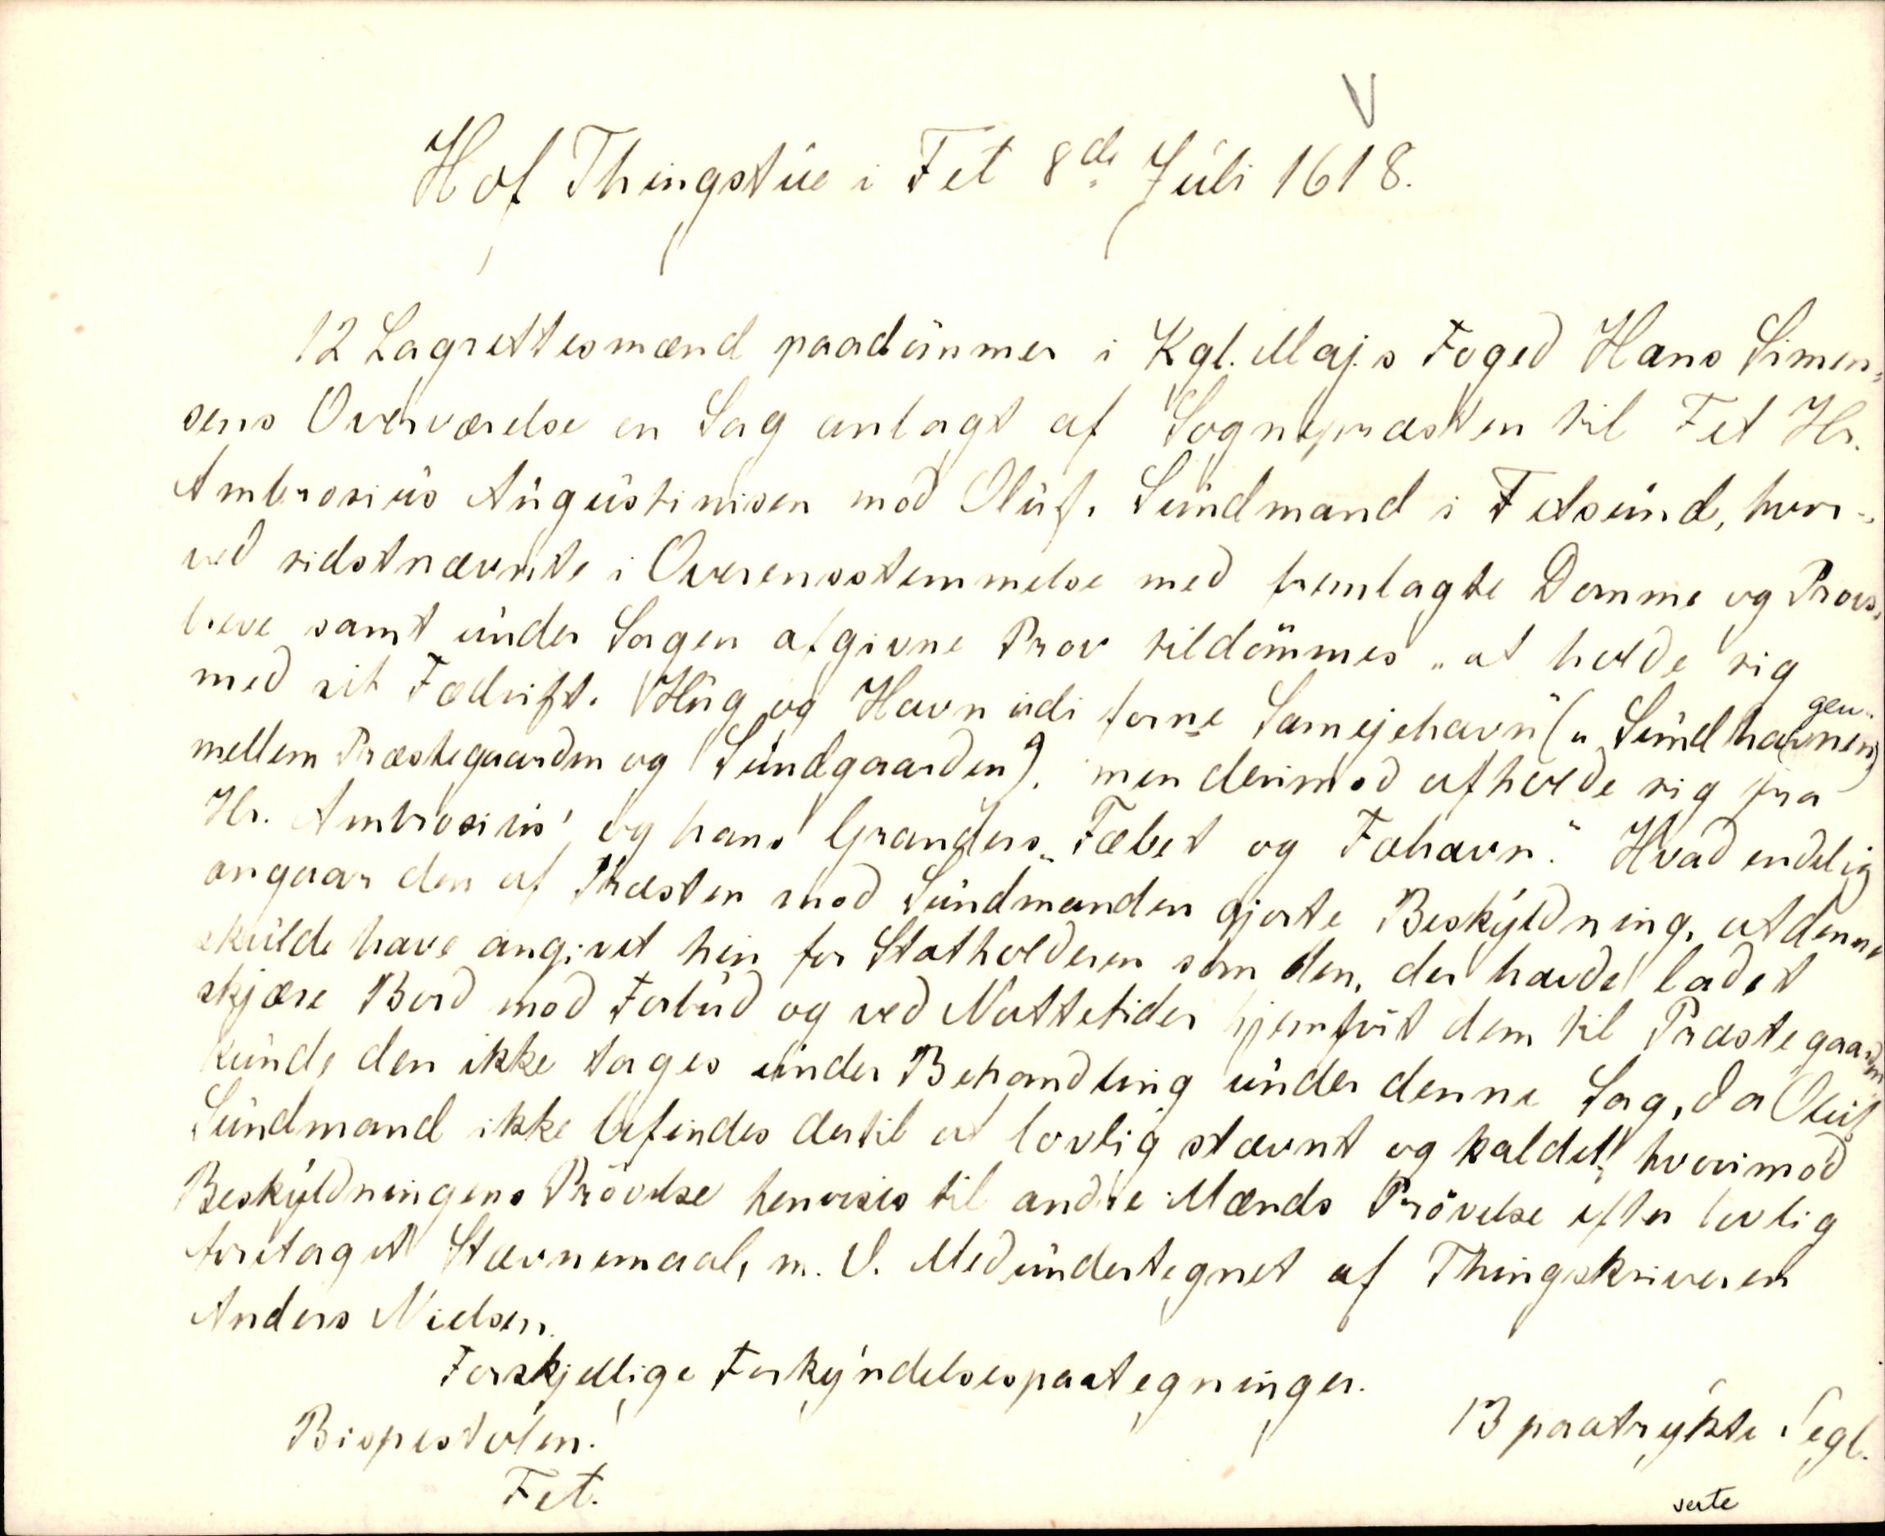 V
Hof Thingstúe i Fet 8de Júli 1618.
12 Lagrettesmænd paadömmer i Kgl. Maj.s Foged Hans Simen-
sens Overværelse en Sag anlagt af Sognepræsten til Fet Hr.
Ambrosiús Aúgústinisen mod Olúf Súndmand i Fetsúnd, hvor-
ved sidstnævnte i Overensstemmelse med fremlagte Domme og Provs-
breve samt únder Sagen afgivne Prov tildömmes „at holde sig
med sit Fædrift. Húg og Havn údi forne Samejehavn“ („Súndhavnen
gen“
mellem Præstegaarden og Súndgaarden), men derimod afholde sig fra
Hr. Ambrosiús' og hans Granders „Fæbet og Fæhavn.“ Hvad endelig
angaar den af Præsten mod Súndmanden gjorte Beskýldning, at denne
skúlde have angivet hin for Statholderen som den, der havde ladet
skjære Bord mod Forbúd og ved Nattetider hjemfört dem til Præstegaarden
kúnde den ikke tages únder Behandling únder denne Sag, da Olúf
Súndmand ikke befindes dertil at lovlig stævnt og kaldet“, hvorimod
Beskýldningens Prövelse henvises til andre Mænds Prövelse efter lovlig
foretaget Stævnemaal, m. V. Medúndertegnet af Thingskriveren
Anders Nielsen.
Forskjellige Forkýndelsespaategninger.
13 paatrýkte Segl.
Bispestolen.
Fet.
verte